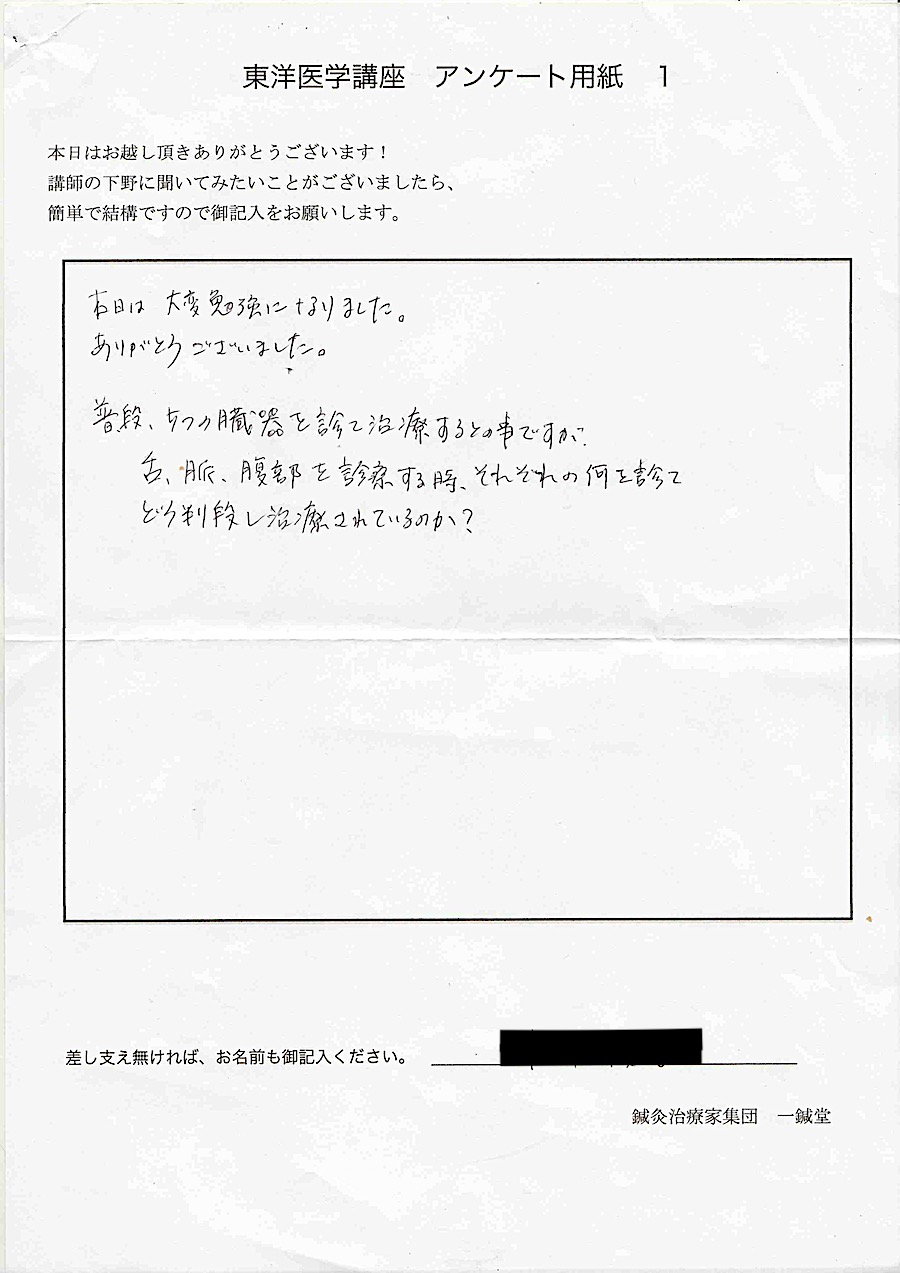 東洋医学講座　アンケート用紙　1
本日はお越し頂きありがとうございます！
講師の下野に聞いてみたいことがございましたら、
簡単で結構ですので御記入をお願いします。
本日は 大変勉強になりました。
ありがとうございました。
普段、5つの臓器を診て治療するとの事ですが、
舌、脈、腹部を診察する時、それぞれの何を診て
どう判段し治療されているのか?
差し支え無ければ、お名前も御記入ください。
鍼灸治療家集団　一鍼堂